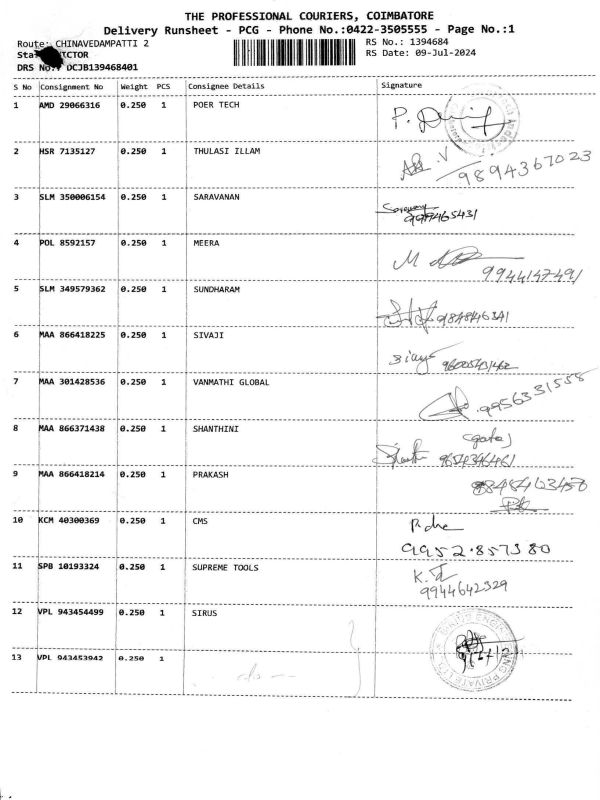 THE PROFESSIONAL COURIERS, COIMBATORE
Delivery Runsheet - PCG - Phone No.:0422-3505555 - Page No.:1
Route: CHINAVEDAMPATTI 2
RS No.: 1394684
RS Date: 09-Jul-2024
DRS No.: DCJB139468401
S No Consignment No Weight PCS Consignee Details Signature
1 AMD 29066316 0.250 1 POER TECH
2 HSR 7135127 0.250 1 THULASI ILLAM 9894367023
3 SLM 350006154 0.250 1 SARAVANAN
4 POL 8592157 0.250 1 MEERA 9944147491
5 SLM 349579362 0.250 1 SUNDHARAM
6 MAA 866418225 0.250 1 SIVAJI
7 MAA 301428536 0.250 1 VANMATHI GLOBAL 9956331558
8 MAA 866371438 0.250 1 SHANTHINI
9 MAA 866418214 0.250 1 PRAKASH
10 KCM 40300369 0.250 1 CMS
9952.857380
11 SPB 10193324 0.250 1 SUPREME TOOLS
9944642329
12 VPL 943454499 0.250 1 SIRUS
13 VPL 943453942 0.250 1